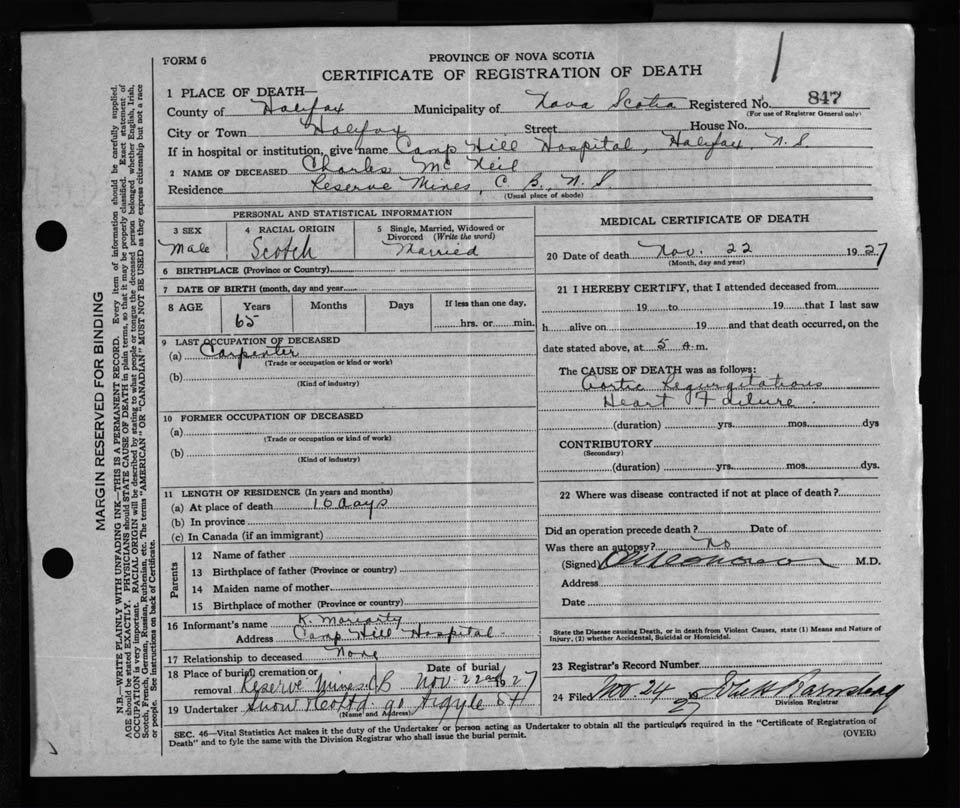 FORM 6
PROVINCE OF NOVA SCOTIA
CERTIFICATE OF REGISTRATION OF DEATH
1 PLACE OF DEATH—
County of Halifax Municipality of Nova Scotia Registered No. 847
(For use of Registrar General only)
City or Town Halifax Street House No.
If in hospital or institution, give name Camp Hill Hospital, Halifax, N. S.
2 NAME OF DECEASED Charles McNeil
Residence Reserve Mines, C. B., N. S.
(Usual place of abode)
PERSONAL AND STATISTICAL INFORMATION
3 SEX 4 RACIAL ORIGIN 5 Single, Married, Widowed or Divorced (Write the word)
Male Scotch Married
6 BIRTHPLACE (Province or Country)
7 DATE OF BIRTH (month, day and year)
8 AGE Years Months Days If less than one day,
65 hrs. or min.
9 LAST OCCUPATION OF DECEASED
(a) Carpenter
(Trade or occupation or kind or work)
(b)
(Kind of industry)
10 FORMER OCCUPATION OF DECEASED
(a)
(Trade or occupation or kind of work)
(b)
(Kind of industry)
11 LENGTH OF RESIDENCE (In years and months)
(a) At place of death 10 days
(b) In province
(c) In Canada (if an immigrant)
Parents
12 Name of father
13 Birthplace of father (Province or country)
14 Maiden name of mother
15 Birthplace of mother (Province or country)
16 Informant's name K. Moriarty
Address Camp Hill Hospital
17 Relationship to deceased None
18 Place of burial, cremation or removal Reserve Mines CB Date of burial Nov. 22nd 1927
19 Undertaker Snow & Co Ltd 90 Argyle St
(Name and Address)
MEDICAL CERTIFICATE OF DEATH
20 Date of death Nov. 22 1927
(Month, day and year)
21 I HEREBY CERTIFY, that I attended deceased from
19 to 19 that I last saw
h alive on 19 and that death occurred, on the
date stated above, at 5 A.m.
The CAUSE OF DEATH was as follows:
Aortic Regurgitations
Heart Failure.
(duration) yrs. mos. dys
CONTRIBUTORY
(Secondary)
(duration) yrs. mos. dys.
22 Where was disease contracted if not at place of death?
Did an operation precede death? Date of
Was there an autopsy? No
(Signed) M.D.
Address
Date
State the Disease causing Death, or in death from Violent Causes, state (1) Means and Nature of
Injury, (2) whether Accidental, Suicidal or Homicidal.
23 Registrar's Record Number
24 Filed Nov 24 1927
Division Registrar
SEC. 46—Vital Statistics Act makes it the duty of the Undertaker or person acting as Undertaker to obtain all the particulars required in the "Certificate of Registration of
Death" and to fyle the same with the Division Registrar who shall issue the burial permit. (OVER)
MARGIN RESERVED FOR BINDING
N.B.—WRITE PLAINLY WITH UNFADING INK—THIS IS A PERMANENT RECORD. Every item of information should be carefully supplied.
AGE should be stated EXACTLY. PHYSICIANS should STATE CAUSE OF DEATH in plain terms, so that it may be properly classified. Exact statement of
OCCUPATION is very important. RACIAL ORIGIN will be described by stating to what people or tongue the deceased person belonged whether English, Irish,
Scotch, French, German, Russian, Ruthenian, etc. The terms "AMERICAN" OR "CANADIAN" MUST NOT BE USED as they express citizenship but not a race
or people. See instructions on back of Certificate.